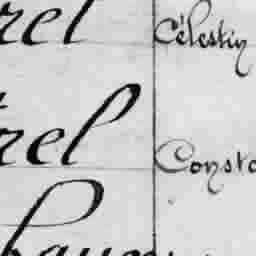 rel Célestin
rel Consta
haum